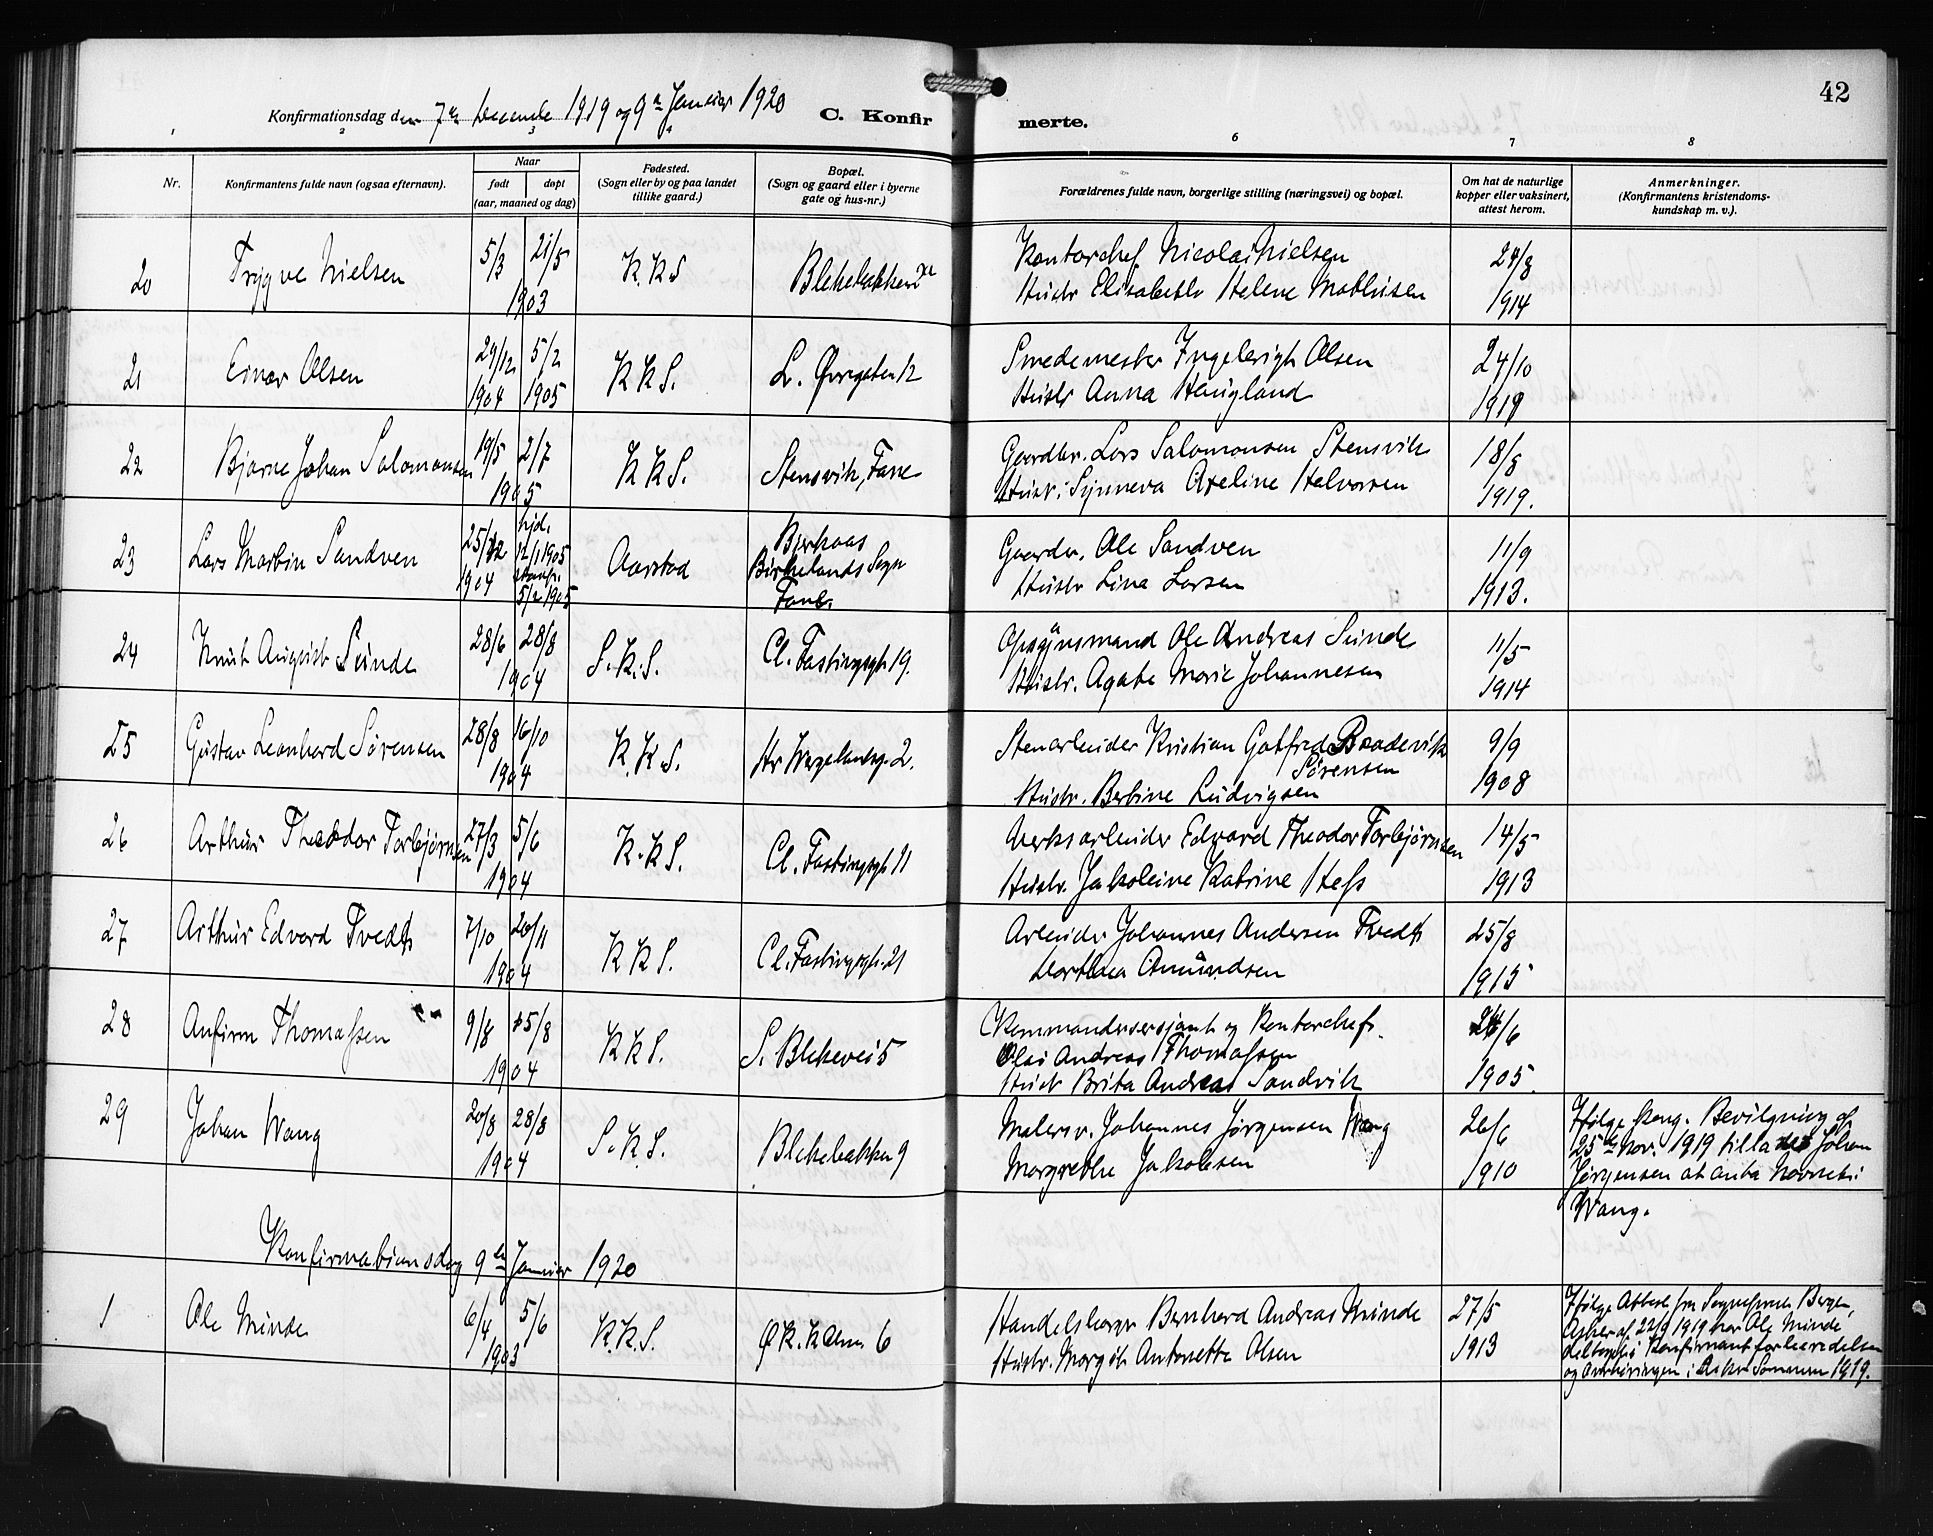 42
Konfirmationsdag den 7de Decembr 1919 og 9de Januar 1920
C. Konfirmerte.
1 2 3 4 6 7 8
Nr.
Konfirmantens fulde navn (ogsaa efternavn).
Naar
født døpt
(aar, maaned og dag)
Fødested.
(Sogn eller by og paa landet
tillike gaard.)
Bopæl.
(Sogn og gaard eller i byerne
gate og hus-nr.)
Forældrenes fulde navn, borgerlige stilling (næringsvei) og bopæl.
Om hat de naturlige
kopper eller vaksinert,
attest herom.
Anmerkninger.
(Konfirmantens kristendoms-
kundskap m. v.).
20 Trygve Nielsen 5/3 21/5 1903 K.K.S Blekebakken
Kontorchef Nicolai Nielsen
Hustr Elisabeth Helene Mathisen
24/8
1914
21 Einar Olsen 29/12 1904 5/2 1905 K K S. L. Øvregaten 12
Smedemester Ingebrigt Olsen
Hustr Anna Haugland
24/10
1919
22 Bjarne Johan Salomonsen 19/5 2/7 1905 K K S. Stensvik, Fane
Gaardbr. Lars Salomonsen Stensvik
Hustr. Synneva Axeline Halvorsen
18/8
1919.
23 Lars Martin Sandven 25/12 1904 hjd. 12/1 1905 stadf. 5/2 1905 Aarstad
Birkelands Sogn
Fane.
Gaardbr. Ole Sandven
Hustr Lina Larsen
11/9
1913.
24 Knut Angvist Sunde 28/6 28/8 1904 S.K.S. Cl. Fastingsgt 19.
Opsynsmand Ole Andreas Sunde
Hustr. Agate Marie Johannesen
11/5
1914
25 Gustav Leonhard Sørensen 28/8 16/10 1904 K.K.S. Hr Wergelandsg. 2.
Stenarbeider Kristian Gotfred Bradevik
Sørensen
Hustr. Bertine Ludvigsen
9/9
1908
26 Arthur Theodor Torbjørnsen 27/3 5/6 1904 K.K S. Cl. Fastingsgt 11
Verksarbeider Edvard Theodor Torbjørnsen
Hustr. Jakobine Katrine Hess
14/5
1913
27 Arthur Edvard Tvedt 7/10 20/11 1904 K K S. Cl. Fastingsgt. 21
Arbeider Johannes Andersen Tvedt
Dorthea Amundsen
25/8
1915
28 Anfinn Thomassen 9/8 1904 K K S. S. Blekevei 5
Kommandersersjant og Kontorchef.
Olai Andreas Thomassen
Hustr Brita Andrea Sandvik
/6
1905.
29 Johan Wang 20/8 28/8 1904 S.K.S. Blekebakken 9
Malersv. Johannes Jørgensen Wang
Margrethe Jakobsen
26/6
1910
Ifølge kong. Bevilgning af
25de Nov. 1919 tillades Johan
Jørgensen at anta Navnet:
Wang.
Konfirmationsdag 9de Januar 1920
1 Ole Minde 6/4 5/6 1903 K.K.S. Ø K. K Alm. 6
Handelsborger Bernhard Andreas Minde
Hustr. Margit Antonette Olsen
27/5
1913
Ifølge Attest fra Sogneprest Berge,
Asker af 22/9 1919 har Ole Minde
deltagt i Konfirmantforberedelsen
og Overhøringen i Asker Sommeren 1919.